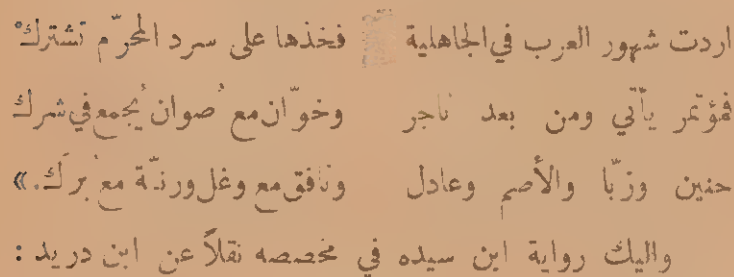 اردت شهور العرب في الجاهلية فخذها على سرد المحرّم تشترك
فمؤتمر يأتي ومن بعد ناجر وخوّان مع صوان يُجمع في شرك
حنين وزبّا والأصم وعادل ونافق مع وغل ورنّة مع برك.»
واليك رواية ابن سيده في مخصصه نقلاً عن ابن دريد :